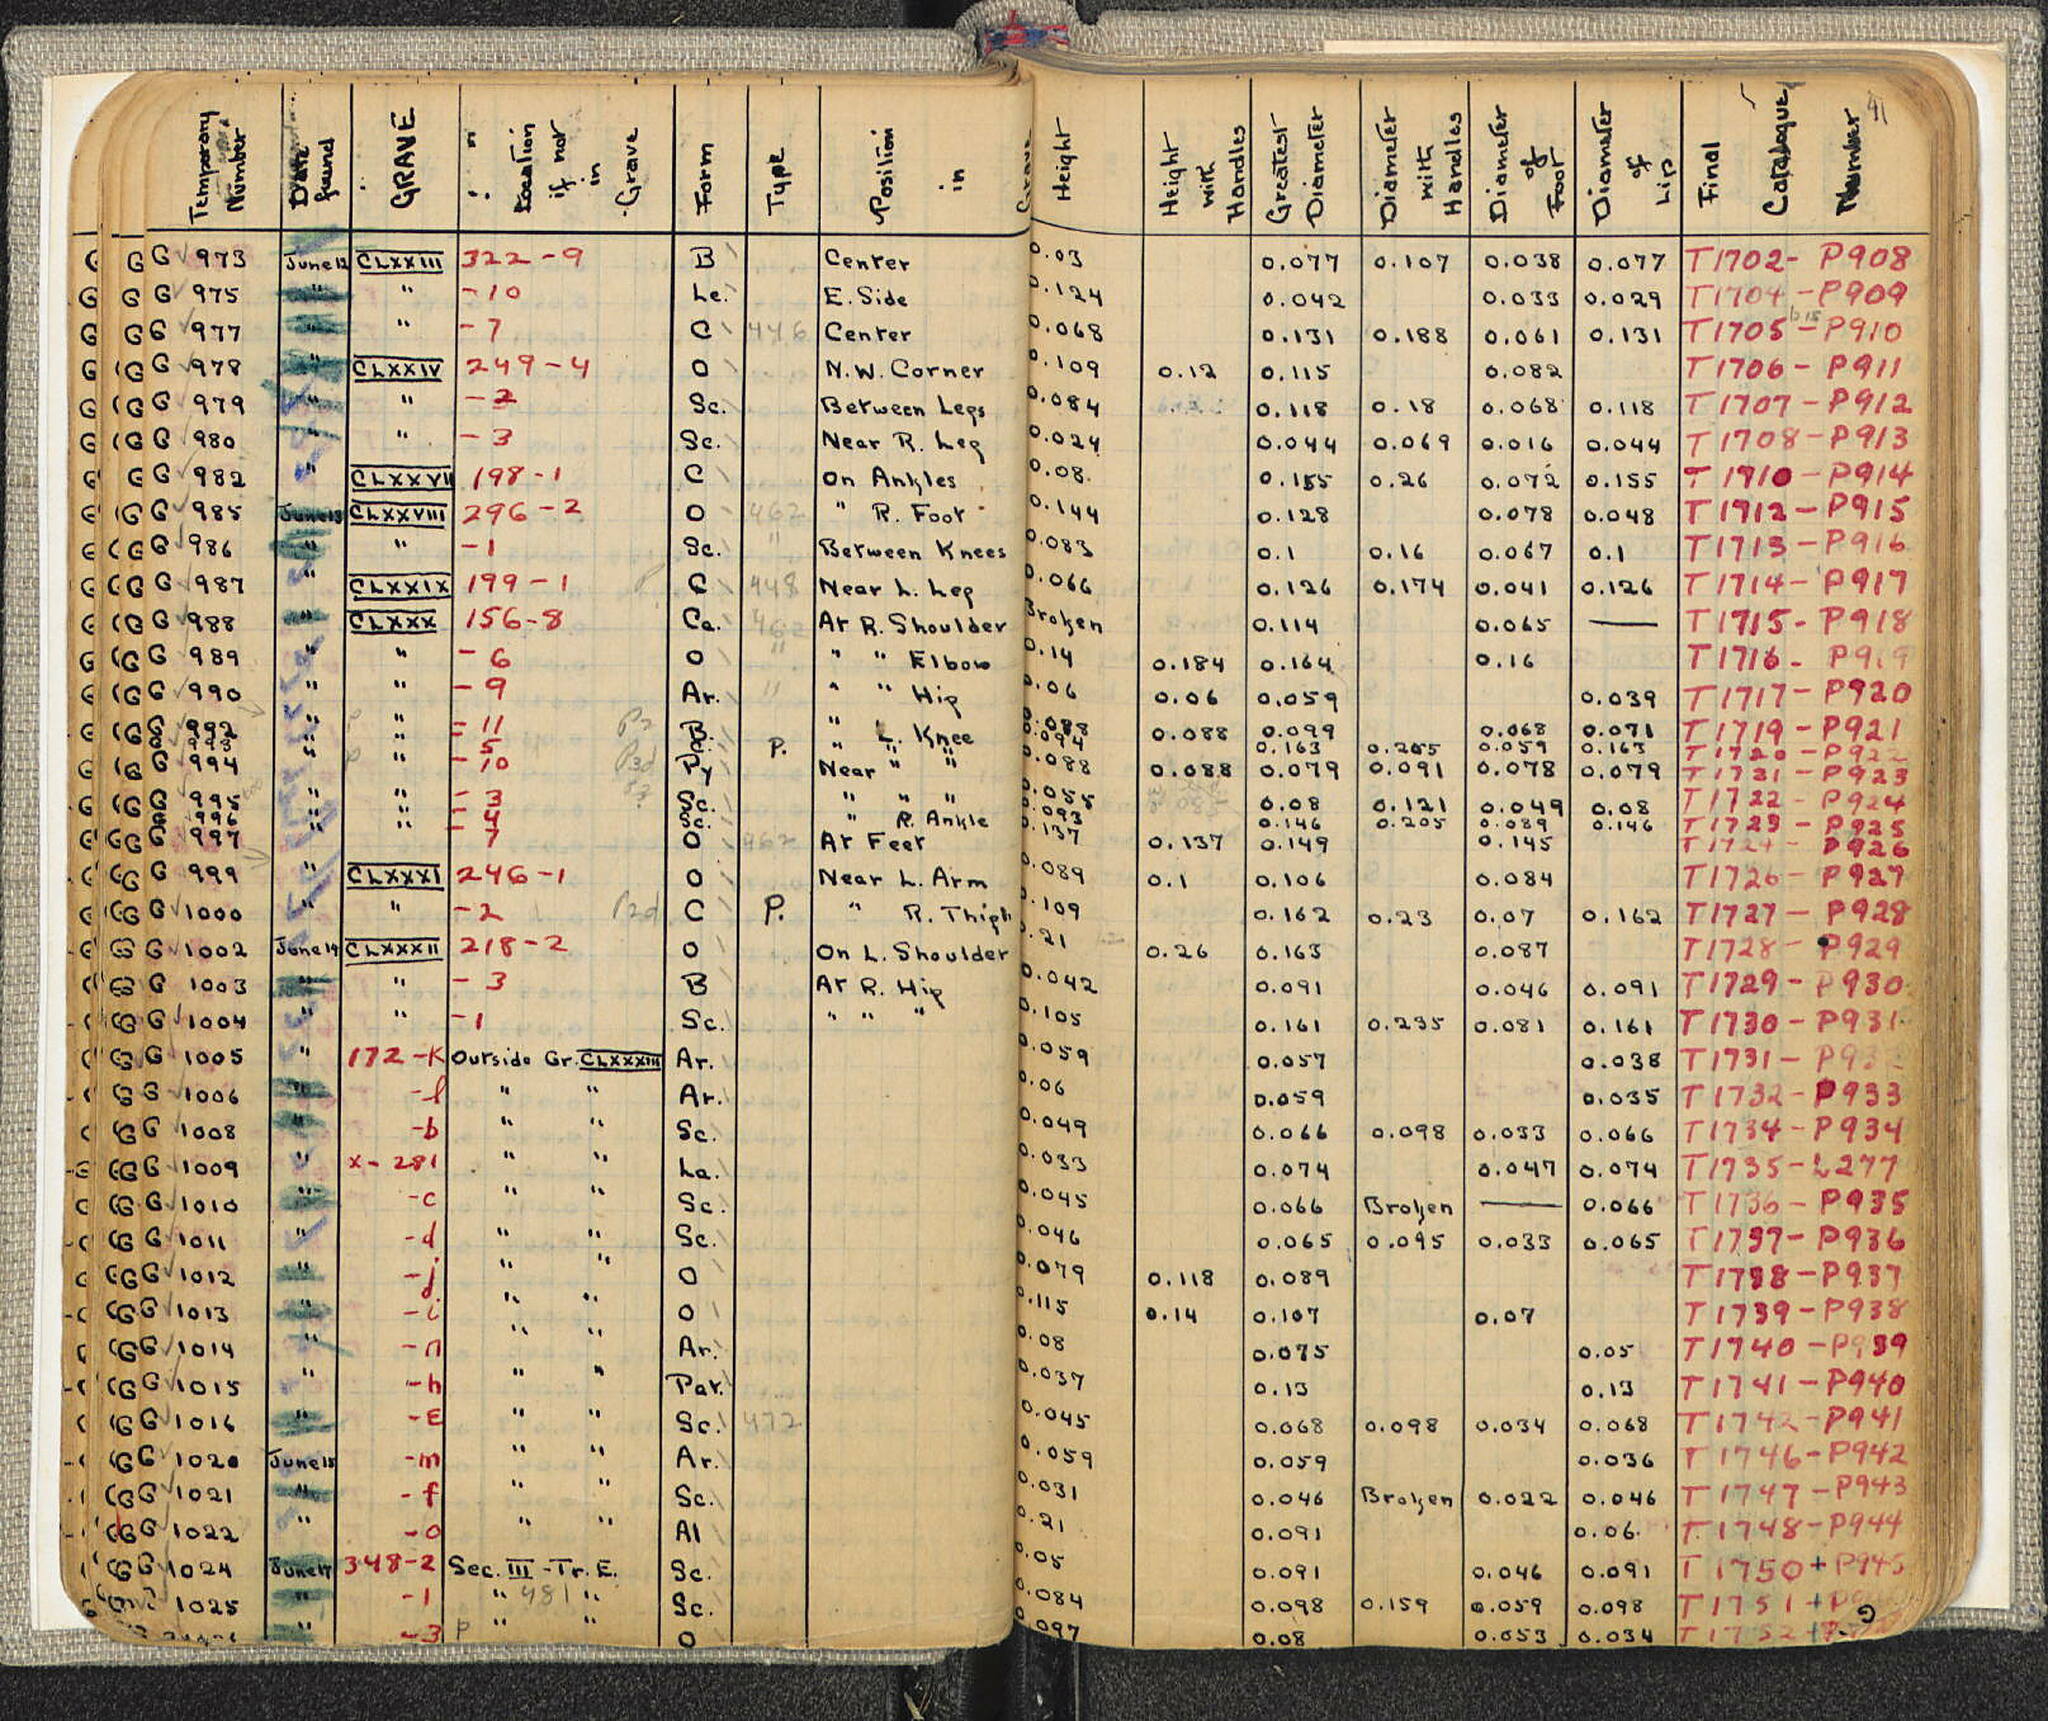 Temporary Number Date found GRAVE Location if not in Grave Form Type Position in Grave Height Height with Handles Greatest Diameter Diameter with Handles Diameter of Foot Diameter of Lip Final Catalogue Number 41
G 973 June 12 CLXXIII 322-9 B Center 0.03 0.077 0.107 0.038 0.077 T1702- P908
G 975 " " -10 Le. E. Side 0.124 0.042 0.033 0.029 T1704-P909
G 977 " " -7 C 446 Center 0.068 0.131 0.188 0.061 0.131 T1705-P910
G 978 " CLXXIV 249-4 O N.W. Corner 0.109 0.12 0.115 0.082 T1706- P911
G 979 " " -2 Sc. Between Legs 0.084 0.118 0.18 0.068 0.118 T1707-P912
G 980 " " -3 Sc. Near R. Leg 0.024 0.044 0.069 0.016 0.044 T1708-P913
G 982 " CLXXVII 198-1 C On Ankles 0.08. 0.155 0.26 0.072 0.155 T1710-P914
G 985 June 13 CLXXVIII 296-2 O 462 " R. Foot 0.144 0.128 0.078 0.048 T1712-P915
G 986 " " -1 Sc. " Between Knees 0.083 0.1 0.16 0.067 0.1 T1713-P916
G 987 " CLXXIX 199-1 C 448 Near L. Leg 0.066 0.126 0.174 0.041 0.126 T1714-P917
G 988 " CLXXX 156-8 Ca. 462 At R. Shoulder Broken 0.114 0.065 — T1715- P918
G 989 " " -6 O " " " Elbow 0.14 0.184 0.164 0.16 T1716- P919
G 990 " " -9 Ar. " " " Hip 0.06 0.06 0.059 0.039 T1717-P920
G 992 " " -11 B. " L. Knee 0.088 0.088 0.099 0.068 0.071 T1719-P921
G 993 " " -5 P. " " " 0.094 0.163 0.059 0.163 T1720-P922
G 994 " " -10 Py Near " " 0.088 0.088 0.079 0.091 0.078 0.079 T1721-P923
G 995 " " -3 Sc. " " " 0.055 0.08 0.121 0.049 0.08 T1722-P924
G 996 " " -4 Sc. " R. Ankle 0.093 0.146 0.205 0.089 0.146 T1723-P925
G 997 " " -7 O 462 At Feet 0.137 0.137 0.149 0.145 T1724-P926
G 999 " CLXXXI 246-1 O Near L. Arm 0.089 0.1 0.106 0.084 T1726-P927
G 1000 " " -2 P2d C P. " R. Thigh 0.109 0.162 0.23 0.07 0.162 T1727-P928
G 1002 June 14 CLXXXII 218-2 O On L. Shoulder 0.21 0.26 0.163 0.087 T1728-P929
G 1003 " " -3 B At R. Hip 0.042 0.091 0.046 0.091 T1729-P930
G 1004 " " -1 Sc. " " " 0.105 0.161 0.235 0.081 0.161 T1730-P931
G 1005 " 172-K Outside Gr. CLXXXIII Ar. 0.059 0.057 0.038 T1731-P932
G 1006 " -l " " Ar. 0.06 0.059 0.035 T1732-P933
G 1008 " -b " " Sc. 0.049 0.066 0.098 0.033 0.066 T1734-P934
G 1009 " X-281 " " La. 0.033 0.074 0.047 0.074 T1735-L277
G 1010 " -c " " Sc. 0.045 0.066 Broken — 0.066 T1736-P935
G 1011 " -d " " Sc. 0.046 0.065 0.095 0.033 0.065 T1737-P936
G 1012 " -j " " O 0.079 0.118 0.089 T1738-P937
G 1013 " -i " " O 0.115 0.14 0.107 0.07 T1739-P938
G 1014 " -n " " Ar. 0.08 0.075 0.05 T1740-P939
G 1015 " -h " " Pat. 0.037 0.13 0.13 T1741-P940
G 1016 " -E " " Sc. 472 0.045 0.068 0.098 0.034 0.068 T1742-P941
G 1020 June 15 -m " " Ar. 0.059 0.059 0.036 T1746-P942
G 1021 " -f " " Sc. 0.031 0.046 Broken 0.022 0.046 T1747-P943
G 1022 " -o " " Al 0.21 0.091 0.06 T1748-P944
G 1024 June 17 348-2 Sec. III-Tr. E. Sc. 0.05 0.091 0.046 0.091 T1750+P945
G 1025 " -1 " 481 " Sc. 0.084 0.098 0.159 0.059 0.098 T1751+
" -3 P " " O 0.097 0.08 0.053 0.034 T1752+